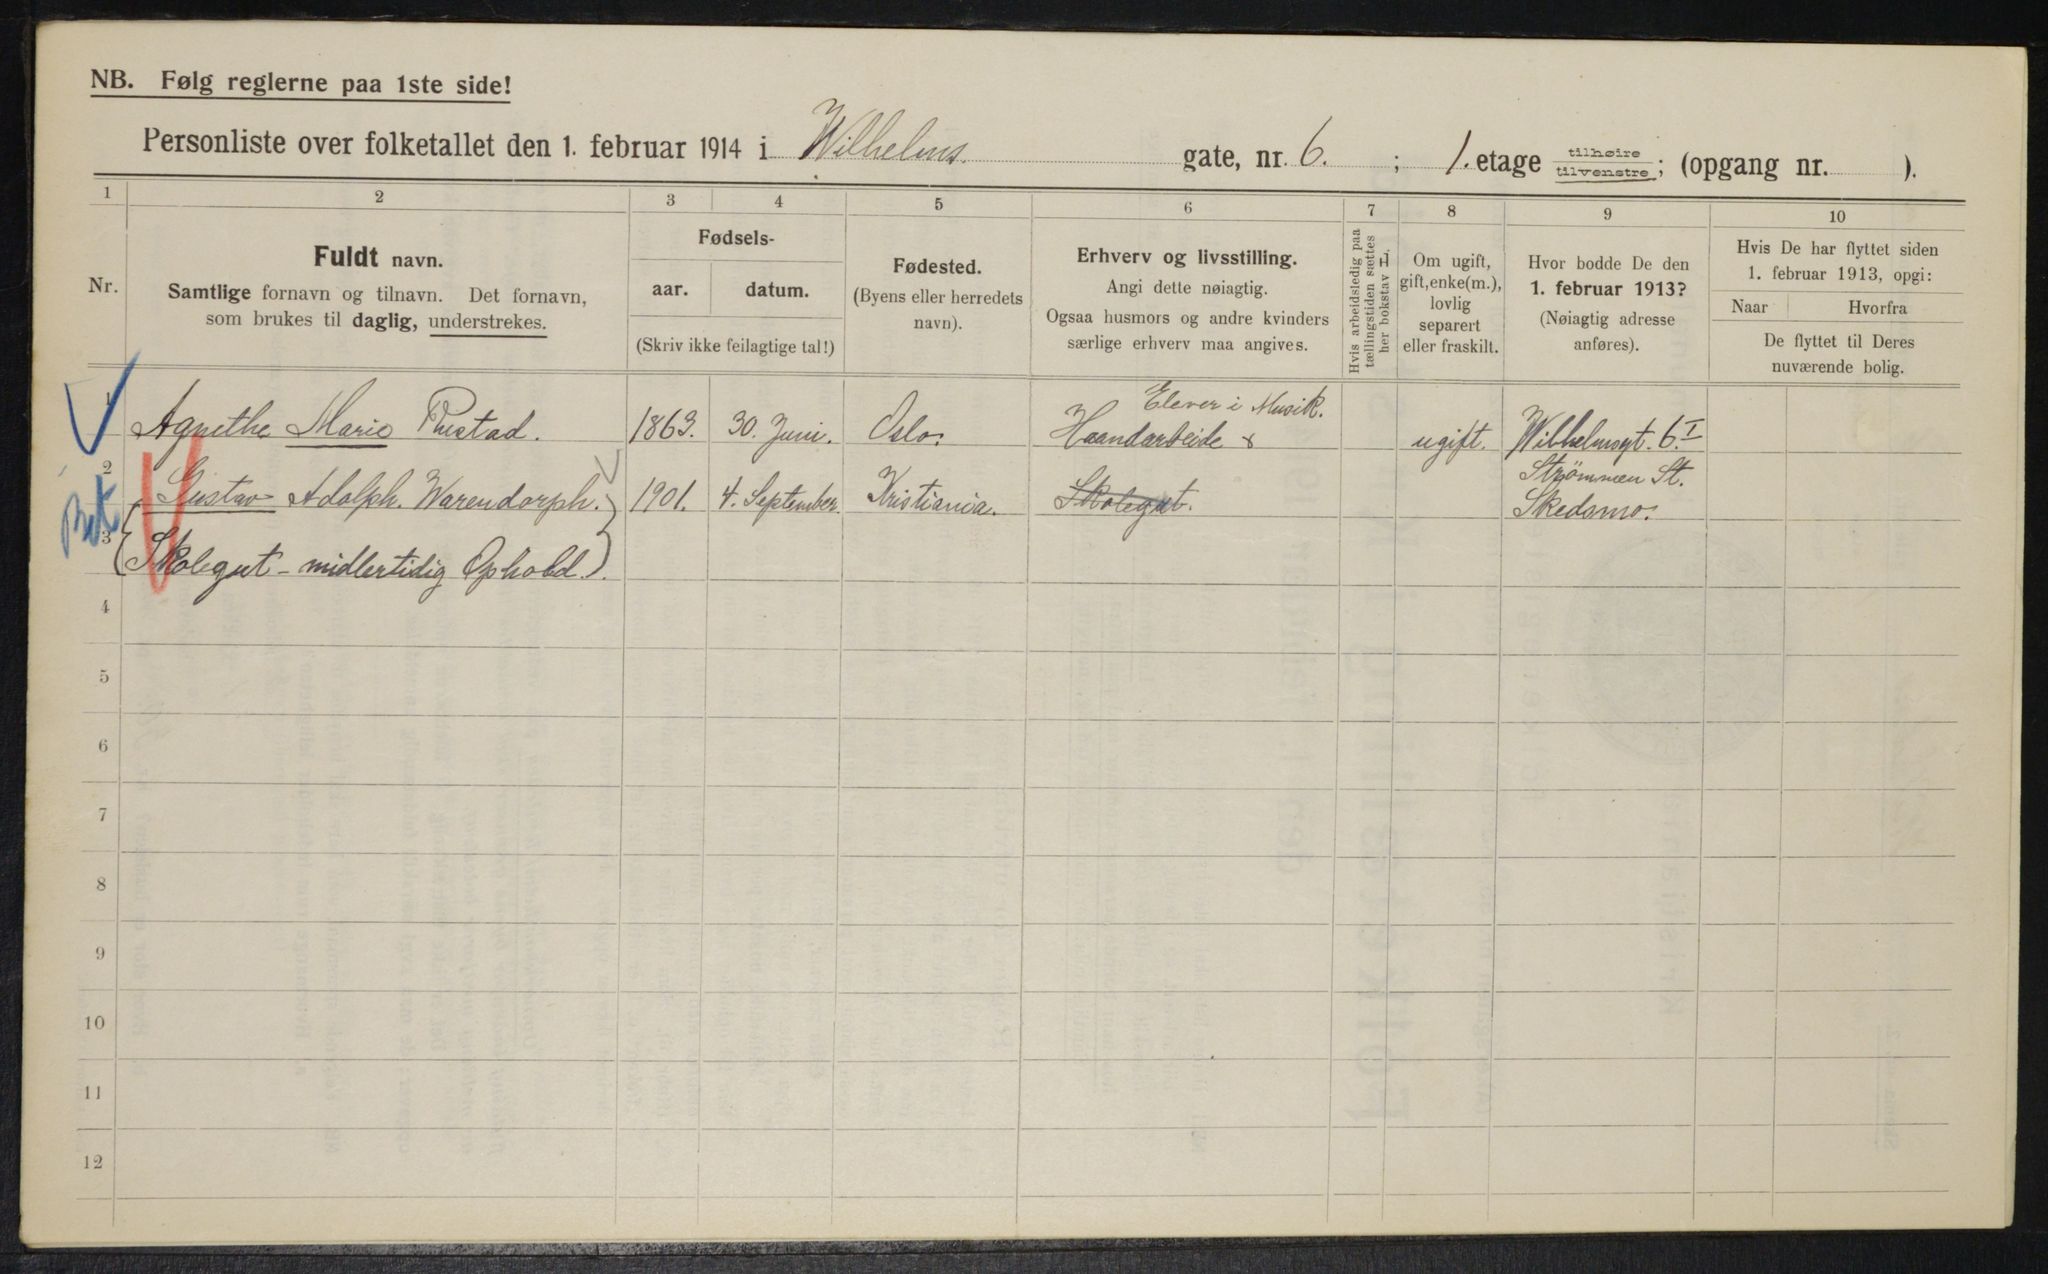 NB. Følg reglerne paa 1ste side!
Personliste over folketallet den 1. februar 1914 i Wilhelms. gate, nr. 6. ; 1. etage tilhøire tilvenstre; (opgang nr. ).
1 2 3 4 5 6 7 8 9 10
Nr.
Fuldt navn.
Samtlige fornavn og tilnavn. Det fornavn,
som brukes til daglig, understrekes.
Fødsels-
aar. datum.
(Skriv ikke feilagtige tal!)
Fødested.
(Byens eller herredets
navn).
Erhverv og livsstilling.
Angi dette nøiagtig.
Ogsaa husmors og andre kvinders
særlige erhverv maa angives.
Hvis arbeidsledig paa
tællingstiden sættes
her bokstav L.
Om ugift,
gift, enke(m.),
lovlig
separert
eller fraskilt.
Hvor bodde De den
1. februar 1913?
(Nøiagtig adresse
anføres).
Hvis De har flyttet siden
1. februar 1913, opgi:
Naar Hvorfra
De flyttet til Deres
nuværende bolig.
Elever i Musik.
1 Agnethe Marie Rustad. 1863. 30. Juni. Oslo. Haandarbeide & ugift. Wilhelmsgt. 6.I
Strømmen St.
2 (Gustav Adolph. Warendorph.) 1901. 4. September. Kristiania. Skolegut. Skedsmo.
3 (Skolegut - midlertidig Ophold.).
4
5
6
7
8
9
10
11
12